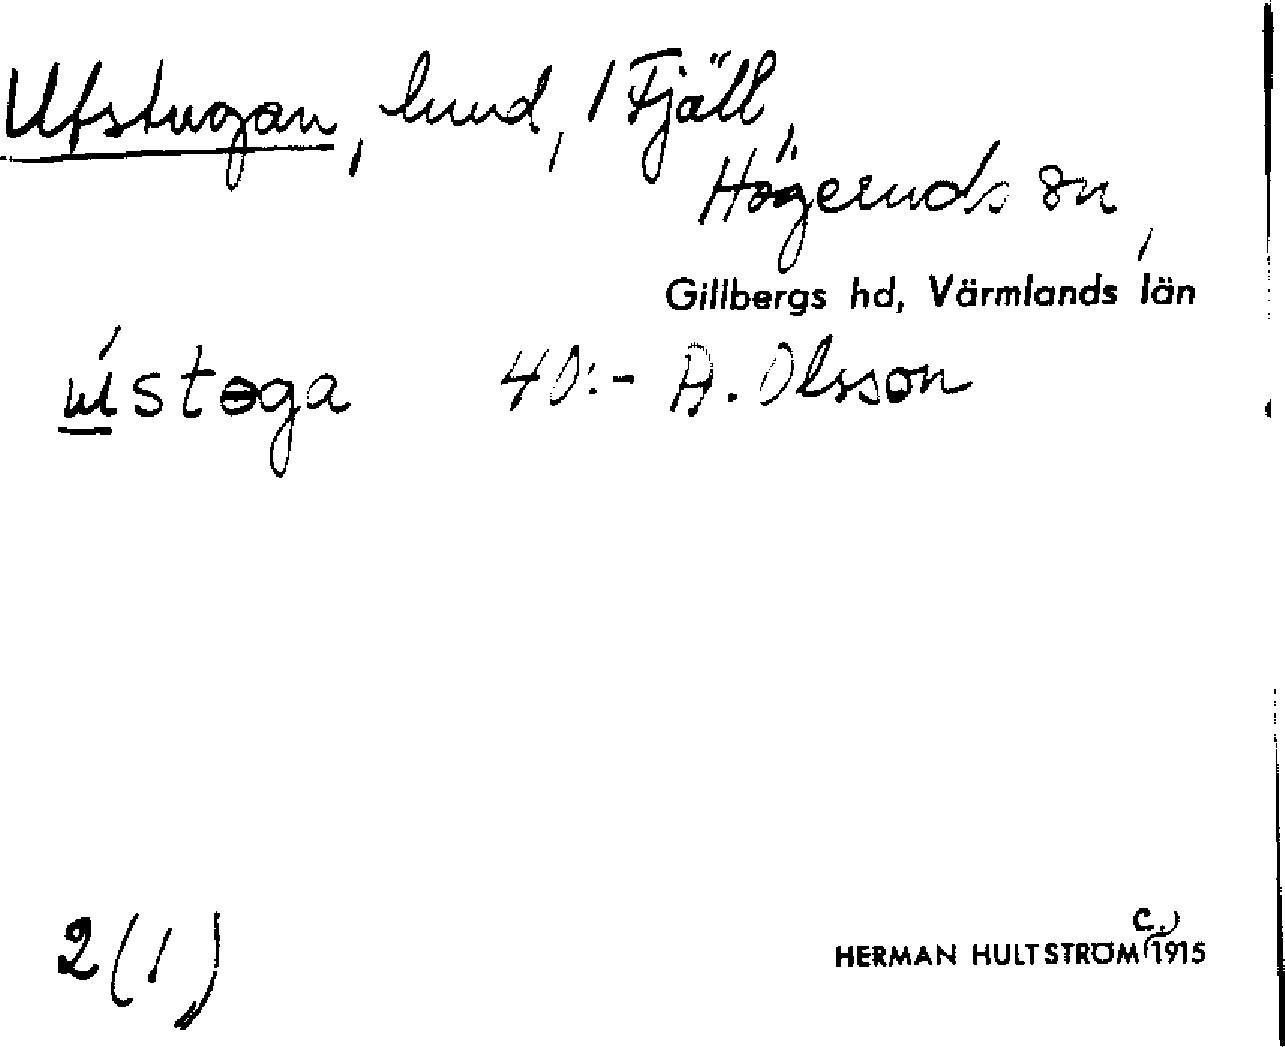 Utstugan, lund, 1 Fjäll,
Högeruds sn,
Gillbergs hd, Värmlands län
40:- A. Olsson
2 (1)
HERMAN HULTSTRÖM (c.) 1915